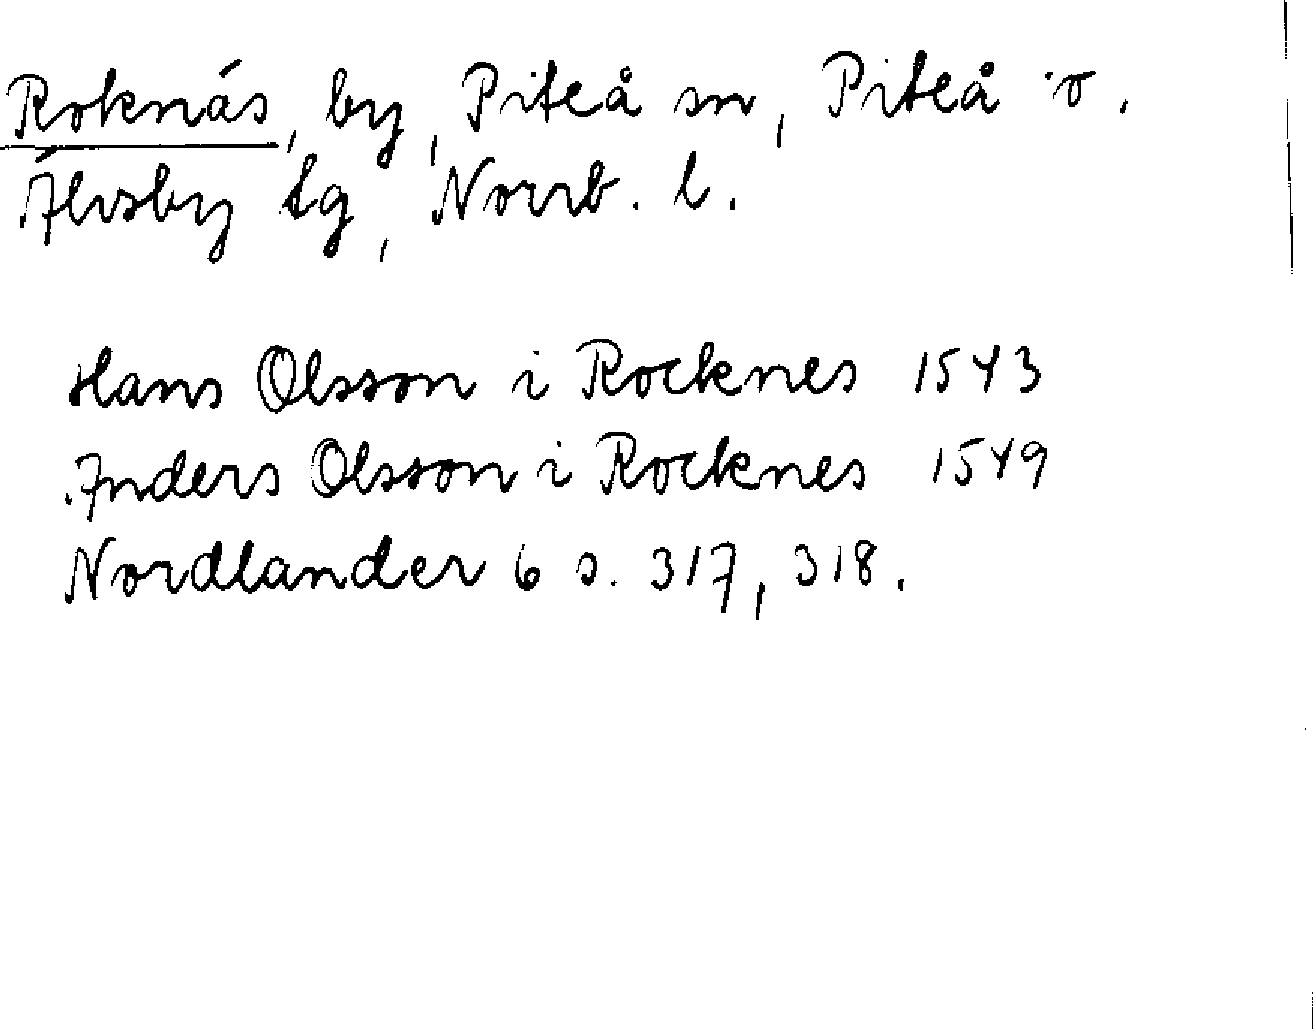 Roknäs, by, Piteå sn, Piteå o.
Älvsby tg, Norrb. l.
Hans Olsson i Rocknes 1543
Anders Olsson i Rocknes 1549
Nordlander 6 s. 317, 318.